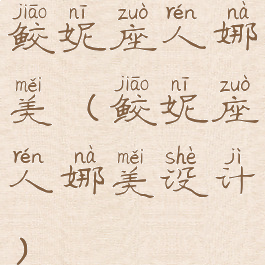 jiāo nī zuò rén nà
鲛妮座人娜
měi jiāo nī zuò
美（鲛妮座
rén nà měi shè jì
人娜美设计
）